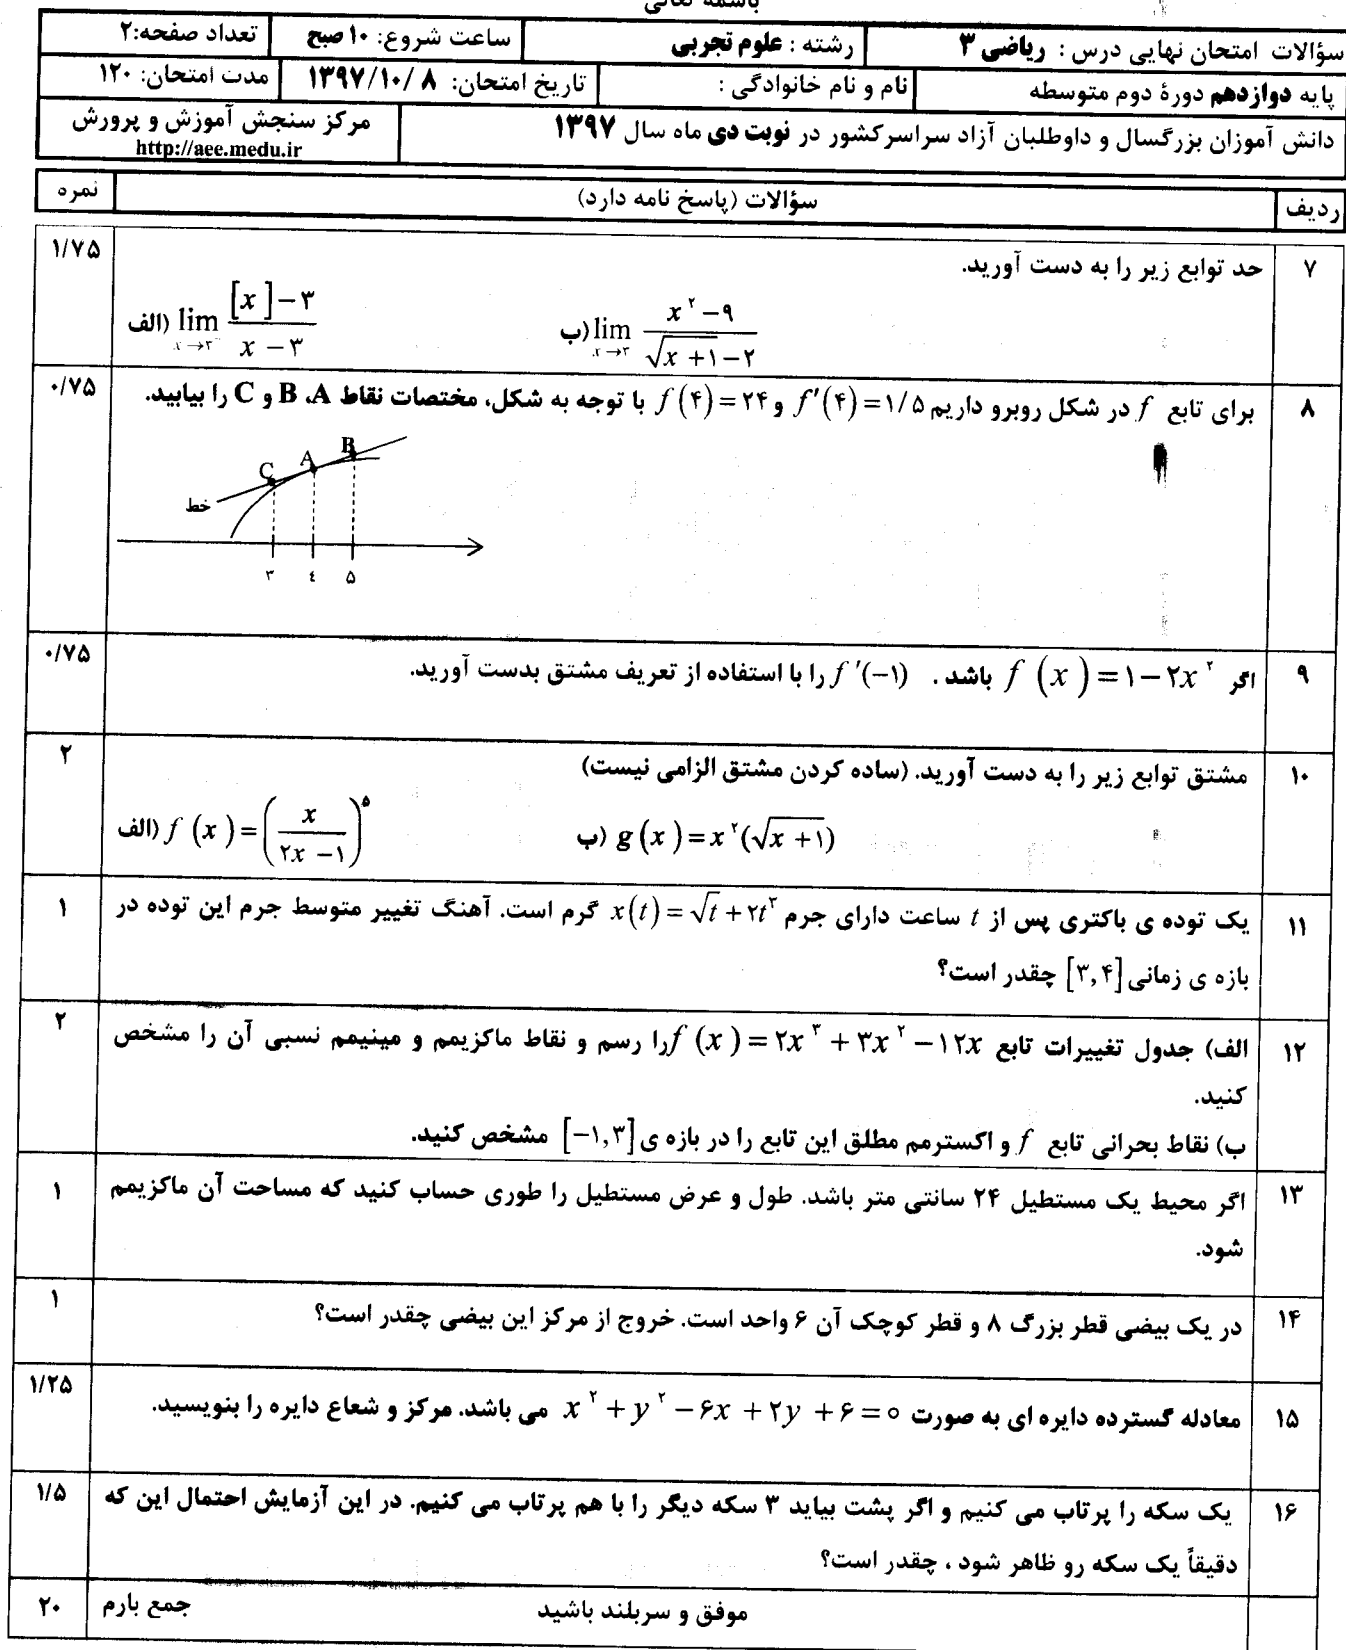 باسمه تعالی
سؤالات امتحان نهایی درس : ریاضی ۳ رشته : علوم تجربی ساعت شروع: ۱۰ صبح تعداد صفحه:۲
پایه دوازدهم دورهٔ دوم متوسطه نام و نام خانوادگی : تاریخ امتحان: ۸ /۱۳۹۷/۱۰ مدت امتحان: ۱۲۰
دانش آموزان بزرگسال و داوطلبان آزاد سراسرکشور در نوبت دی ماه سال ۱۳۹۷ مرکز سنجش آموزش و پرورش
http://aee.medu.ir
ردیف سؤالات (پاسخ نامه دارد) نمره
۷ حد توابع زیر را به دست آورید. ۱/۷۵
الف) lim x→۳⁻ ([x]−۳)/(x−۳) ب) lim x→۳ (x^۲−۹)/(√(x+۱)−۲)
۸ برای تابع f در شکل روبرو داریم f′(۴)=۱/۵ و f(۴)=۲۴ با توجه به شکل، مختصات نقاط A، B و C را بیابید. ۰/۷۵
B
A
C
خط
۳ ٤ ۵
۹ اگر f(x)=۱−۲x^۲ باشد . f′(−۱) را با استفاده از تعریف مشتق بدست آورید. ۰/۷۵
۱۰ مشتق توابع زیر را به دست آورید. (ساده کردن مشتق الزامی نیست) ۲
الف) f(x)=(x/(۲x−۱))^۵ ب) g(x)=x^۲(√(x+۱))
۱۱ یک توده ی باکتری پس از t ساعت دارای جرم x(t)=√t+۲t^۳ گرم است. آهنگ تغییر متوسط جرم این توده در ۱
بازه ی زمانی [۳,۴] چقدر است؟
۱۲ الف) جدول تغییرات تابع f(x)=۲x^۳+۳x^۲−۱۲x را رسم و نقاط ماکزیمم و مینیمم نسبی آن را مشخص ۲
کنید.
ب) نقاط بحرانی تابع f و اکسترمم مطلق این تابع را در بازه ی [−۱,۳] مشخص کنید.
۱۳ اگر محیط یک مستطیل ۲۴ سانتی متر باشد. طول و عرض مستطیل را طوری حساب کنید که مساحت آن ماکزیمم ۱
شود.
۱۴ در یک بیضی قطر بزرگ ۸ و قطر کوچک آن ۶ واحد است. خروج از مرکز این بیضی چقدر است؟ ۱
۱۵ معادله گسترده دایره ای به صورت x^۲+y^۲−۶x+۲y+۶=۰ می باشد. مرکز و شعاع دایره را بنویسید. ۱/۲۵
۱۶ یک سکه را پرتاب می کنیم و اگر پشت بیاید ۳ سکه دیگر را با هم پرتاب می کنیم. در این آزمایش احتمال این که ۱/۵
دقیقاً یک سکه رو ظاهر شود ، چقدر است؟
موفق و سربلند باشید جمع بارم ۲۰